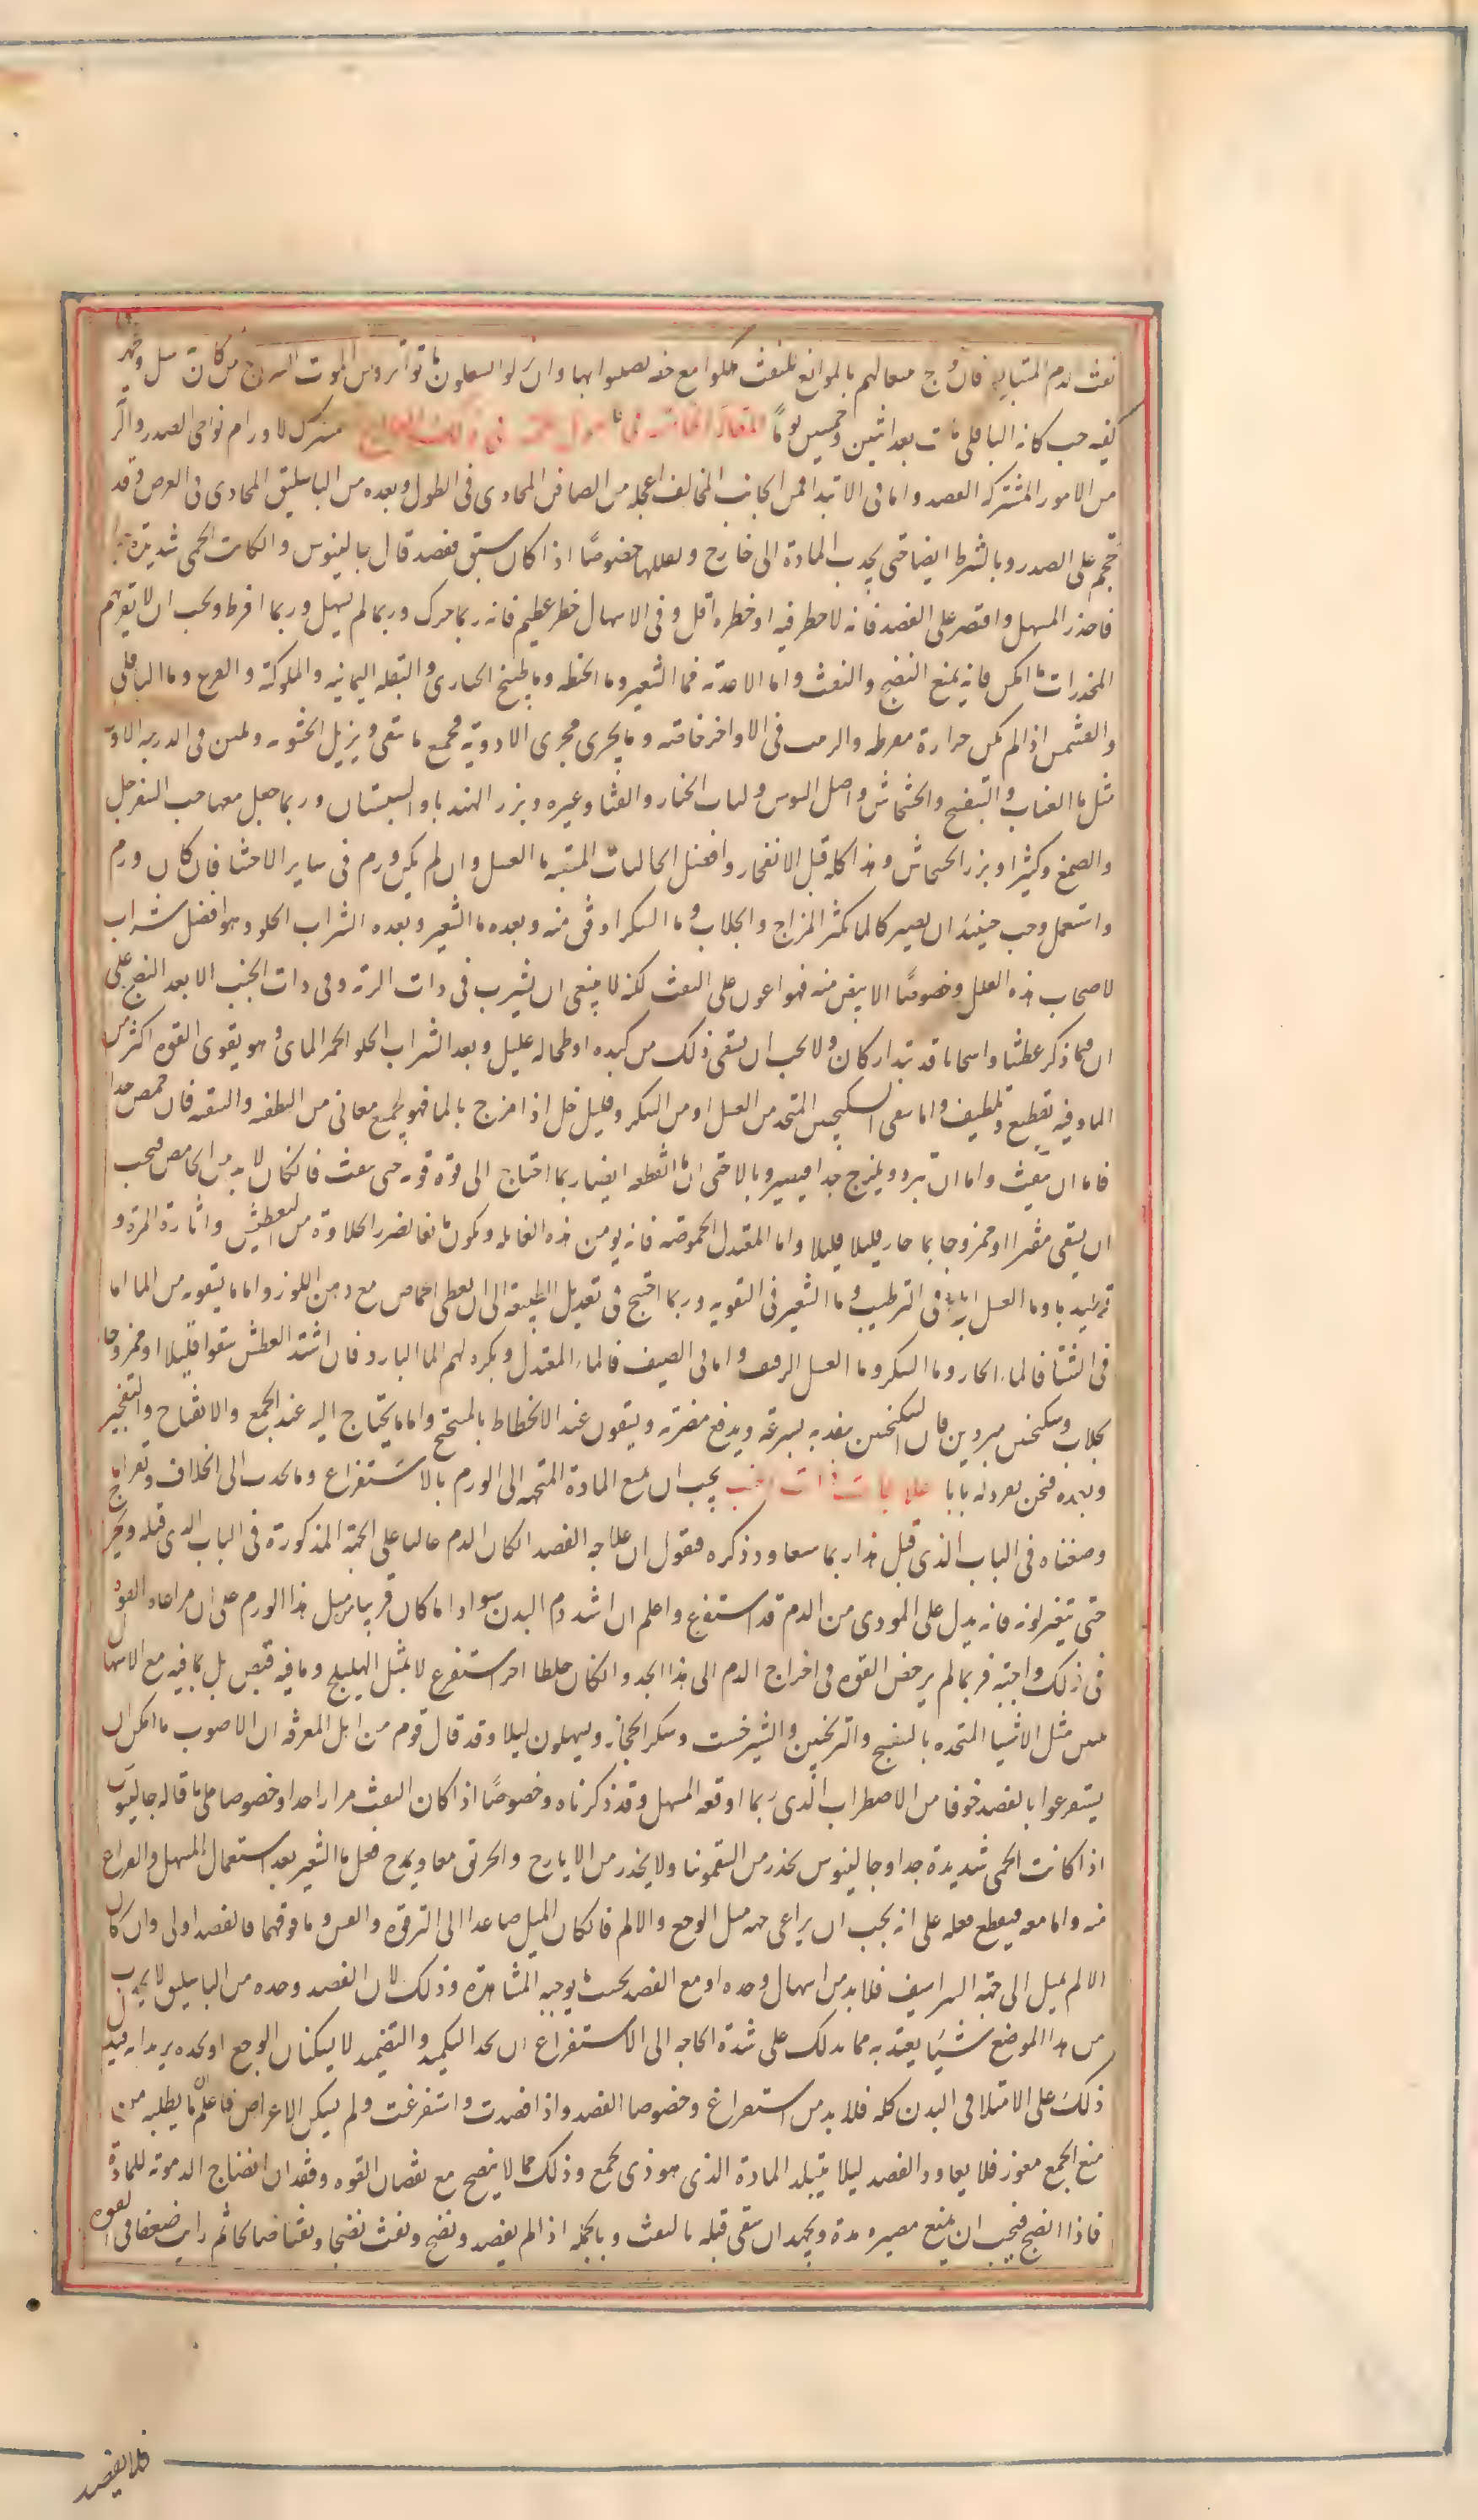 نفث لدم المتبا فان وج معالهم بالموانع للنفث هلكوا مع خفه بصلوا بها وان تولوا الموت
كفيه حب كانه الباقلى مات بعد اثنين وخمسين يوما المقالة الخامسة فى اصول فى ذلك العلاج مشترك لاورام نواحى الصدر والر
من الامور المشتركه الفصد واما فى الابتدا فمن الجانب المخالف اعجله من الصافن المحاذى فى الطول وبعده من الباسليق المحاذى فى العرض وقد
تحجم على الصدر وبالشرط ايضا حتى يجذب المادة الى خارج ويقللها خصوصًا اذا كان سبق فصد قال جالينوس وان كانت الحمى شديدة جدا
فاحذر المسهل واقتصر على الفصد فانه لا خطر فيه او خطره اقل وفى الاسهال خطر عظيم فانه ربما حرك وربما لم يسهل وربما افرط ويجب ان لا تقربهم
المخدرات ما امكن فانه يمنع النضج والنفث واما الاغذية فما الشعير وما الحنطه وما طبيخ الخبازى والبقله اليمانيه والملوكية والقرع وما الباقلى
والعشمس اذا لم تكن حرارة مفرطه والزبيب فى الاواخر خاصة وما يجرى مجرى الادوية فجميع ما ينقى ويزيل الخشونه ويلين فى الدرجه الاولى
مثل ما العناب والبنفسج والخشخاش واصل السوس ولباب الخيار والقثا وغيره وبزر الهندبا والسبستان وربما جعل معها حب السفرجل
والصمغ وكثيرا وبزر الخشخاش وهذا كله قبل الانفجار وافضل الجاليات المنقية ما العسل وان لم يكن ورم فى ساير الاحشا فان كان ورم
واستعمل وجب حينئذ ان يصير كالما بكثر المزاج والجلاب وما السكر اوفق منه وبعده ما الشعير وبعده الشراب الحلو وهو افضل شراب
لاصحاب هذه العلل وخصوصًا الابيض منه فهو اعون على النفث لكنه لا ينبغى ان يشرب فى ذات الريه وفى ذات الجنب الا بعد النضج على
ان فيما ذكر عطشا واسخانا قد يتدارکان ولا يجب ان يسقى ذلك من كبده او طحاله عليل وبعد الشراب الحلو الخمر المائى وهو يقوى القوه اكثر من
الما وفيه تقطيع وتلطيف واما سقى السكنجبين المتخذ من العسل او من السكر وقليل خل اذا مزج بالما فهو يجمع معانى من التطفيه والتنقيه فان حمض جدا
فاما ان نفث واما ان برد ويلزج جدا فيصير وبالا حتى ان ما اقطعه ايضا ربما احتاج الى قوة قويه حتى ينفث فان كان لابد من الحامض فيجب
ان يسقى مفترا او ممزوجا بما حار قليلا قليلا واما المعتدل الحموضه فانه يومن هذه الغايله ويكون نافعا لضرر الحلاوة من التعطيش واثارة المرة و
توليدها وما العسل ابلغ فى الترطيب وما الشعير فى التقويه وربما احتيج فى تعديل الطبيعة الى ان يعطى الحماض مع دهن اللوز واما ما يسقونه من الما اما
فى الشتا فالما الحار وما السكر وما العسل الرقيق واما فى الصيف فالما المعتدل ويكره لهم الما البارد فان اشتد العطش سقوا قليلا او ممزوجا
بجلاب وسكنجبين مبردين فان السكنجبين ينفذ به بسرعة ويدفع مضرته ويسقون عند الانحطاط بالمسخ واما ما يحتاج اليه عند الجمع والانفتاح والتفجير
وبعده فنحن نفرد له بابا علاجات ذات الجنب يجب ان يمنع المادة المتجهه الى الورم بالاستفراغ وما يجذب الى الخلاف وقد
وصفناه فى الباب الذى قبل هذا ربما سنعاود ذكره فنقول ان علاجه الفصد ان كان الدم غالبا على الجهة المذكورة فى الباب الذى قبله ويخرج
حتى يتغير لونه فانه يدل على الموذى من الدم قد استفرغ واعلم ان اشد دم البدن سوادا ما كان قريبا من مثل هذا الورم على ان مراعاة القوه
فى ذلك واجبه فربما لم يرخص القوه فى اخراج الدم الى هذا الحد وان كان خلطا اخر استفرغ لا بمثل الهليلج وما فيه قبض بل بما فيه مع الاسهال
تليين مثل الاشيا المتخذه بالبنفسج والترنجبين والشيرخشت وسكر الحجاز ويسهلون ليلا وقد قال قوم من اهل المعرفه ان الاصوب ما امكن ان
يستفرغوا بالفصد خوفا من الاضطراب الذى ربما اوقعه المسهل وقد ذكرناه وخصوصًا اذا كان النفث مراريا جدا وخصوصا على ما قاله جالينوس
اذا كانت الحمى شديدة جدا وجالينوس يحذر من السقمونيا ولا يحذر من الايارج والخربق معا ويمدح فعل ما الشعير بعد استعمال المسهل والفراغ
منه واما معه فيقطع فعله على انه يجب ان يراعى جهه ميل الوجع والالم فان كان الميل صاعدا الى الترقوة والقس وما فوقهما فالفصد اولى وان كان
الالم يميل الى جهة الشراسيف فلا بد من اسهال وحده او مع الفصد بحسب ما يوجبه المشاهدة وذلك لان الفصد وحده من الباسليق لا يجذب
من هذا الموضع شيئا يعتد به مما يدلك على شدة الحاجه الى الاستفراغ ان تجد التكميد والتضميد لا يسكنان الوجع او تجده يزيد فيه
ذلك على الامتلا فى البدن كله فلا بد من استفراغ وخصوصا الفصد واذا فصدت واستفرغت ولم يسكن الاعراض فاعلم ان ما يطلبه من
منع الجمع معوز فلا يعاود الفصد ليلا يتبلد المادة الذى هو ذى يجمع وذلك مما لا ينضج مع نقصان القوه وفقدان انضاج الدمويه للمادة
فاذا انضج فيجب ان يمنع مصيره مدة ويجهد ان ينقى قبله بالنفث وبالجمله اذا لم يفصد ونضج ونفث نضيجا ونفثا صالحا ثم رايت ضعفا فى القوه
فلا يفصد